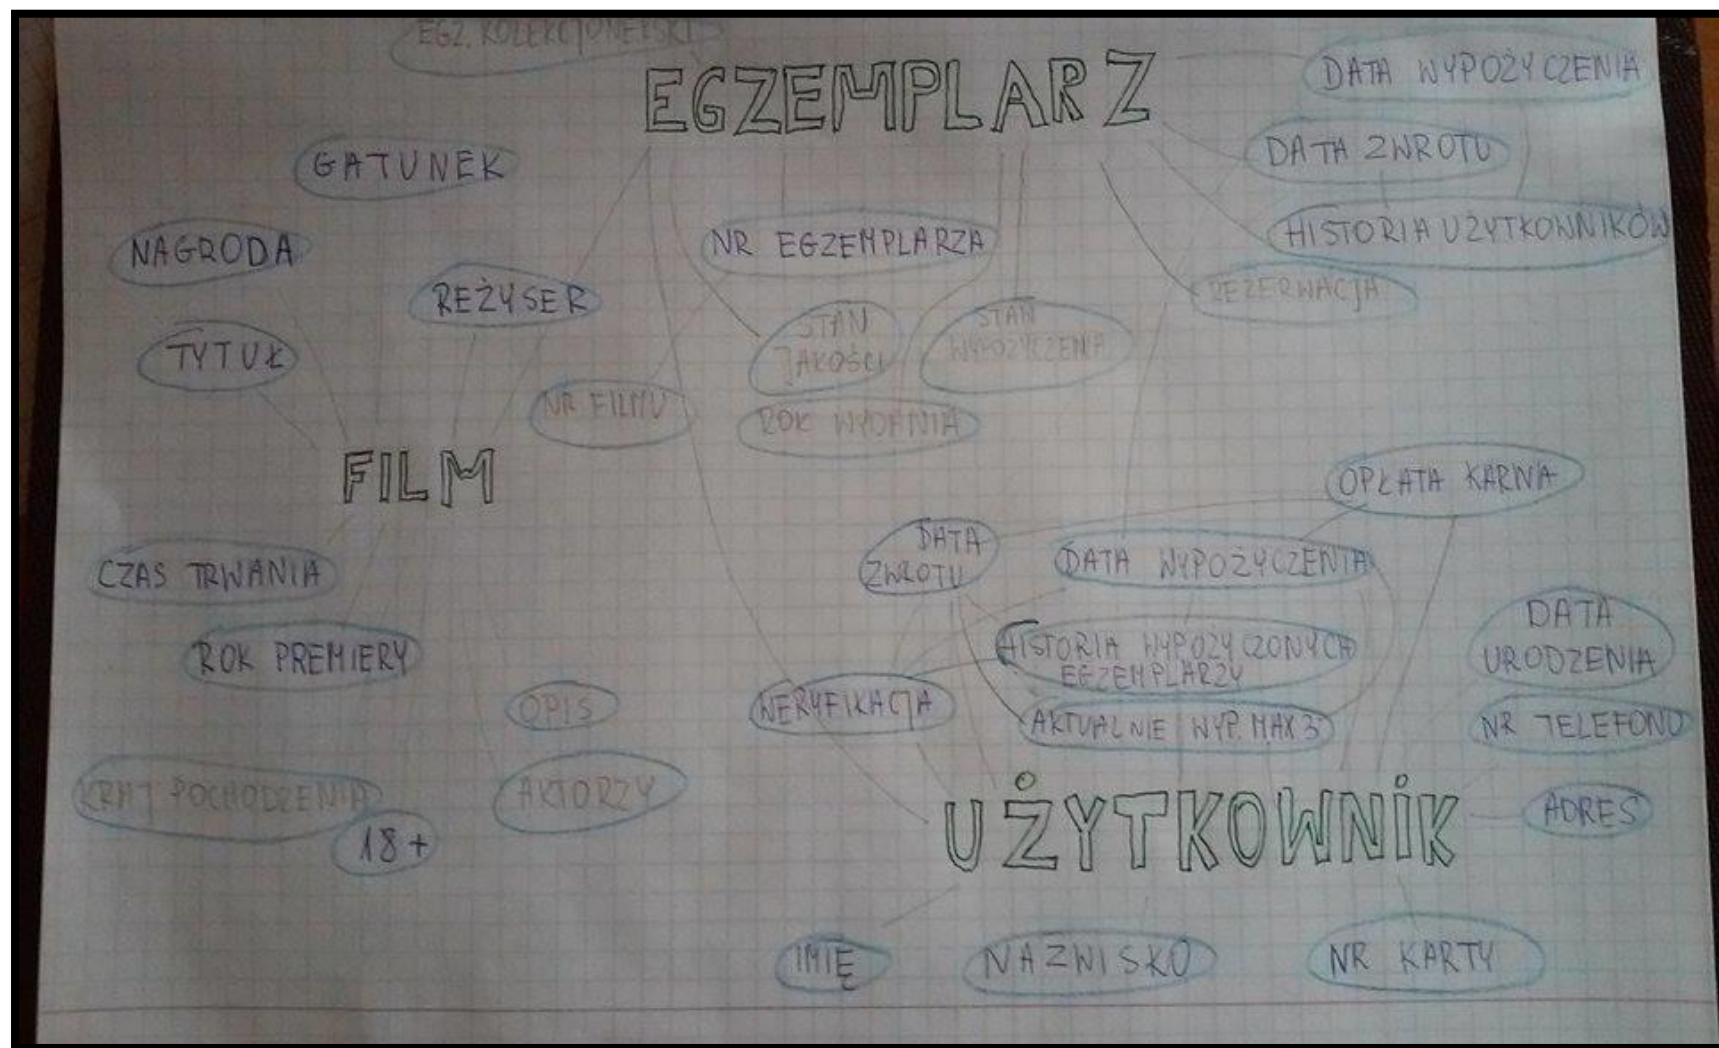 EGZ. KOLEKCJONERSKI
EGZEMPLARZ
DATA WYPOŻYCZENIA
DATA ZWROTU
HISTORIA UŻYTKOWNIKÓW
REZERWACJA
GATUNEK
NAGRODA
REŻYSER
TYTUŁ
NR EGZEMPLARZA
STAN
JAKOŚCI
STAN
WYPOŻYCZENIA
NR FILMU
ROK WYDANIA
FILM
OPŁATA KARNA
DATA
ZWROTU
DATA WYPOŻYCZENIA
CZAS TRWANIA
ROK PREMIERY
HISTORIA WYPOŻYCZONYCH
EGZEMPLARZY
DATA
URODZENIA
OPIS
WERYFIKACJA
AKTUALNIE WYP. MAX 3
NR TELEFONU
KRAJ POCHODZENIA
AKTORZY
18+
UŻYTKOWNIK
ADRES
IMIĘ
NAZWISKO
NR KARTY